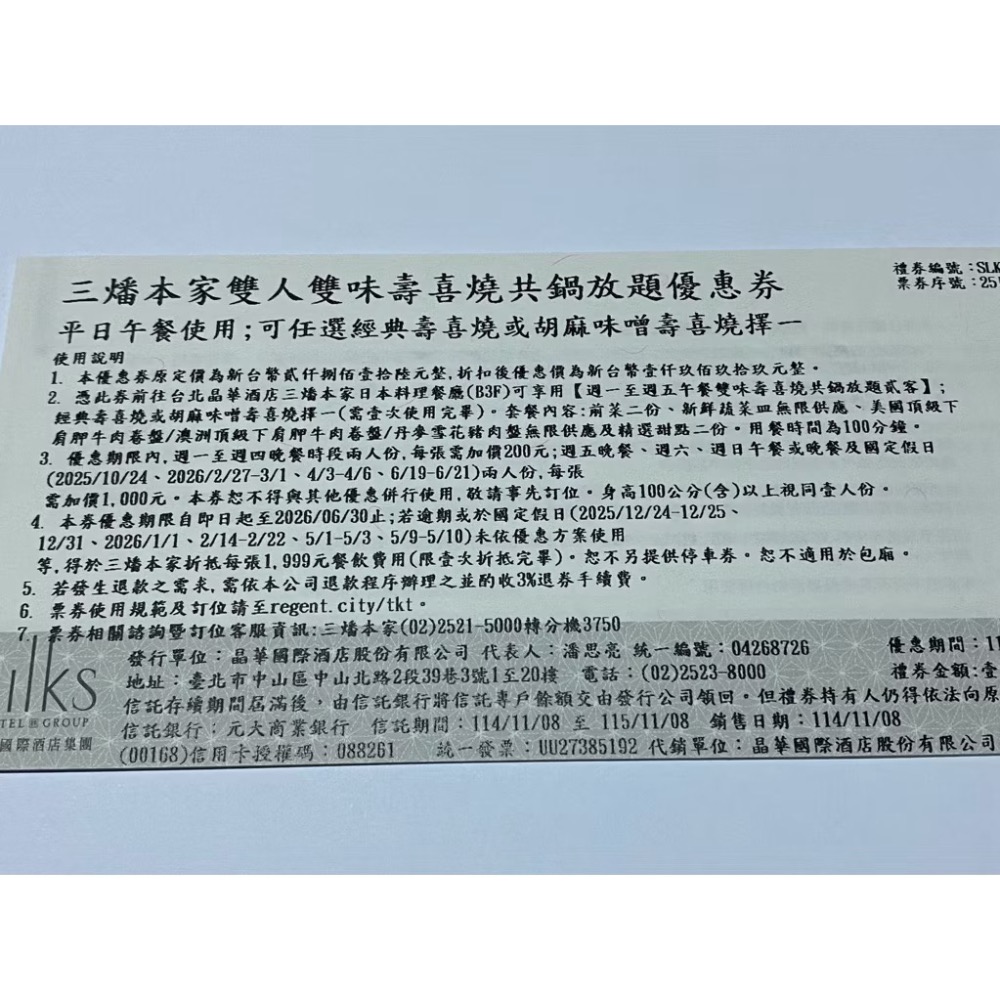 禮券編號：SLK
票券序號：25
三燔本家雙人雙味壽喜燒共鍋放題優惠券
平日午餐使用；可任選經典壽喜燒或胡麻味噌壽喜燒擇一
使用說明
1. 本優惠券原定價為新台幣貳仟捌佰壹拾陸元整，折扣後優惠價為新台幣壹仟玖佰玖拾玖元整。
2. 憑此券前往台北晶華酒店三燔本家日本料理餐廳(B3F)可享用【週一至週五午餐雙味壽喜燒共鍋放題貳客】；
經典壽喜燒或胡麻味噌壽喜燒擇一(需壹次使用完畢)。套餐內容：前菜二份、新鮮蔬菜皿無限供應、美國頂級下
肩胛牛肉卷盤/澳洲頂級下肩胛牛肉卷盤/丹麥雪花豬肉盤無限供應及精選甜點二份。用餐時間為100分鐘。
3. 優惠期限內，週一至週四晚餐時段兩人份，每張需加價200元；週五晚餐、週六、週日午餐或晚餐及國定假日
(2025/10/24、2026/2/27-3/1、4/3-4/6、6/19-6/21)兩人份，每張
需加價1,000元。本券恕不得與其他優惠併行使用，敬請事先訂位。身高100公分(含)以上視同壹人份。
4. 本券優惠期限自即日起至2026/06/30止；若逾期或於國定假日(2025/12/24-12/25、
12/31、2026/1/1、2/14-2/22、5/1-5/3、5/9-5/10)未依優惠方案使用
等，得於三燔本家折抵每張1,999元餐飲費用(限壹次折抵完畢)。恕不另提供停車券。恕不適用於包廂。
5. 若發生退款之需求，需依本公司退款程序辦理之並酌收3%退券手續費。
6. 票券使用規範及訂位請至regent.city/tkt。
7. 票券相關諮詢暨訂位客服資訊：三燔本家(02)2521-5000轉分機3750
發行單位：晶華國際酒店股份有限公司 代表人：潘思亮 統一編號：04268726 優惠期間：11
地址：臺北市中山區中山北路2段39巷3號1至20樓 電話：(02)2523-8000 禮券金額：壹
信託存續期間屆滿後，由信託銀行將信託專戶餘額交由發行公司領回。但禮券持有人仍得依法向原
信託銀行：元大商業銀行 信託期間：114/11/08 至 115/11/08 銷售日期：114/11/08
(00168)信用卡授權碼：088261 統一發票：UU27385192 代銷單位：晶華國際酒店股份有限公司
ilks
TEL GROUP
國際酒店集團